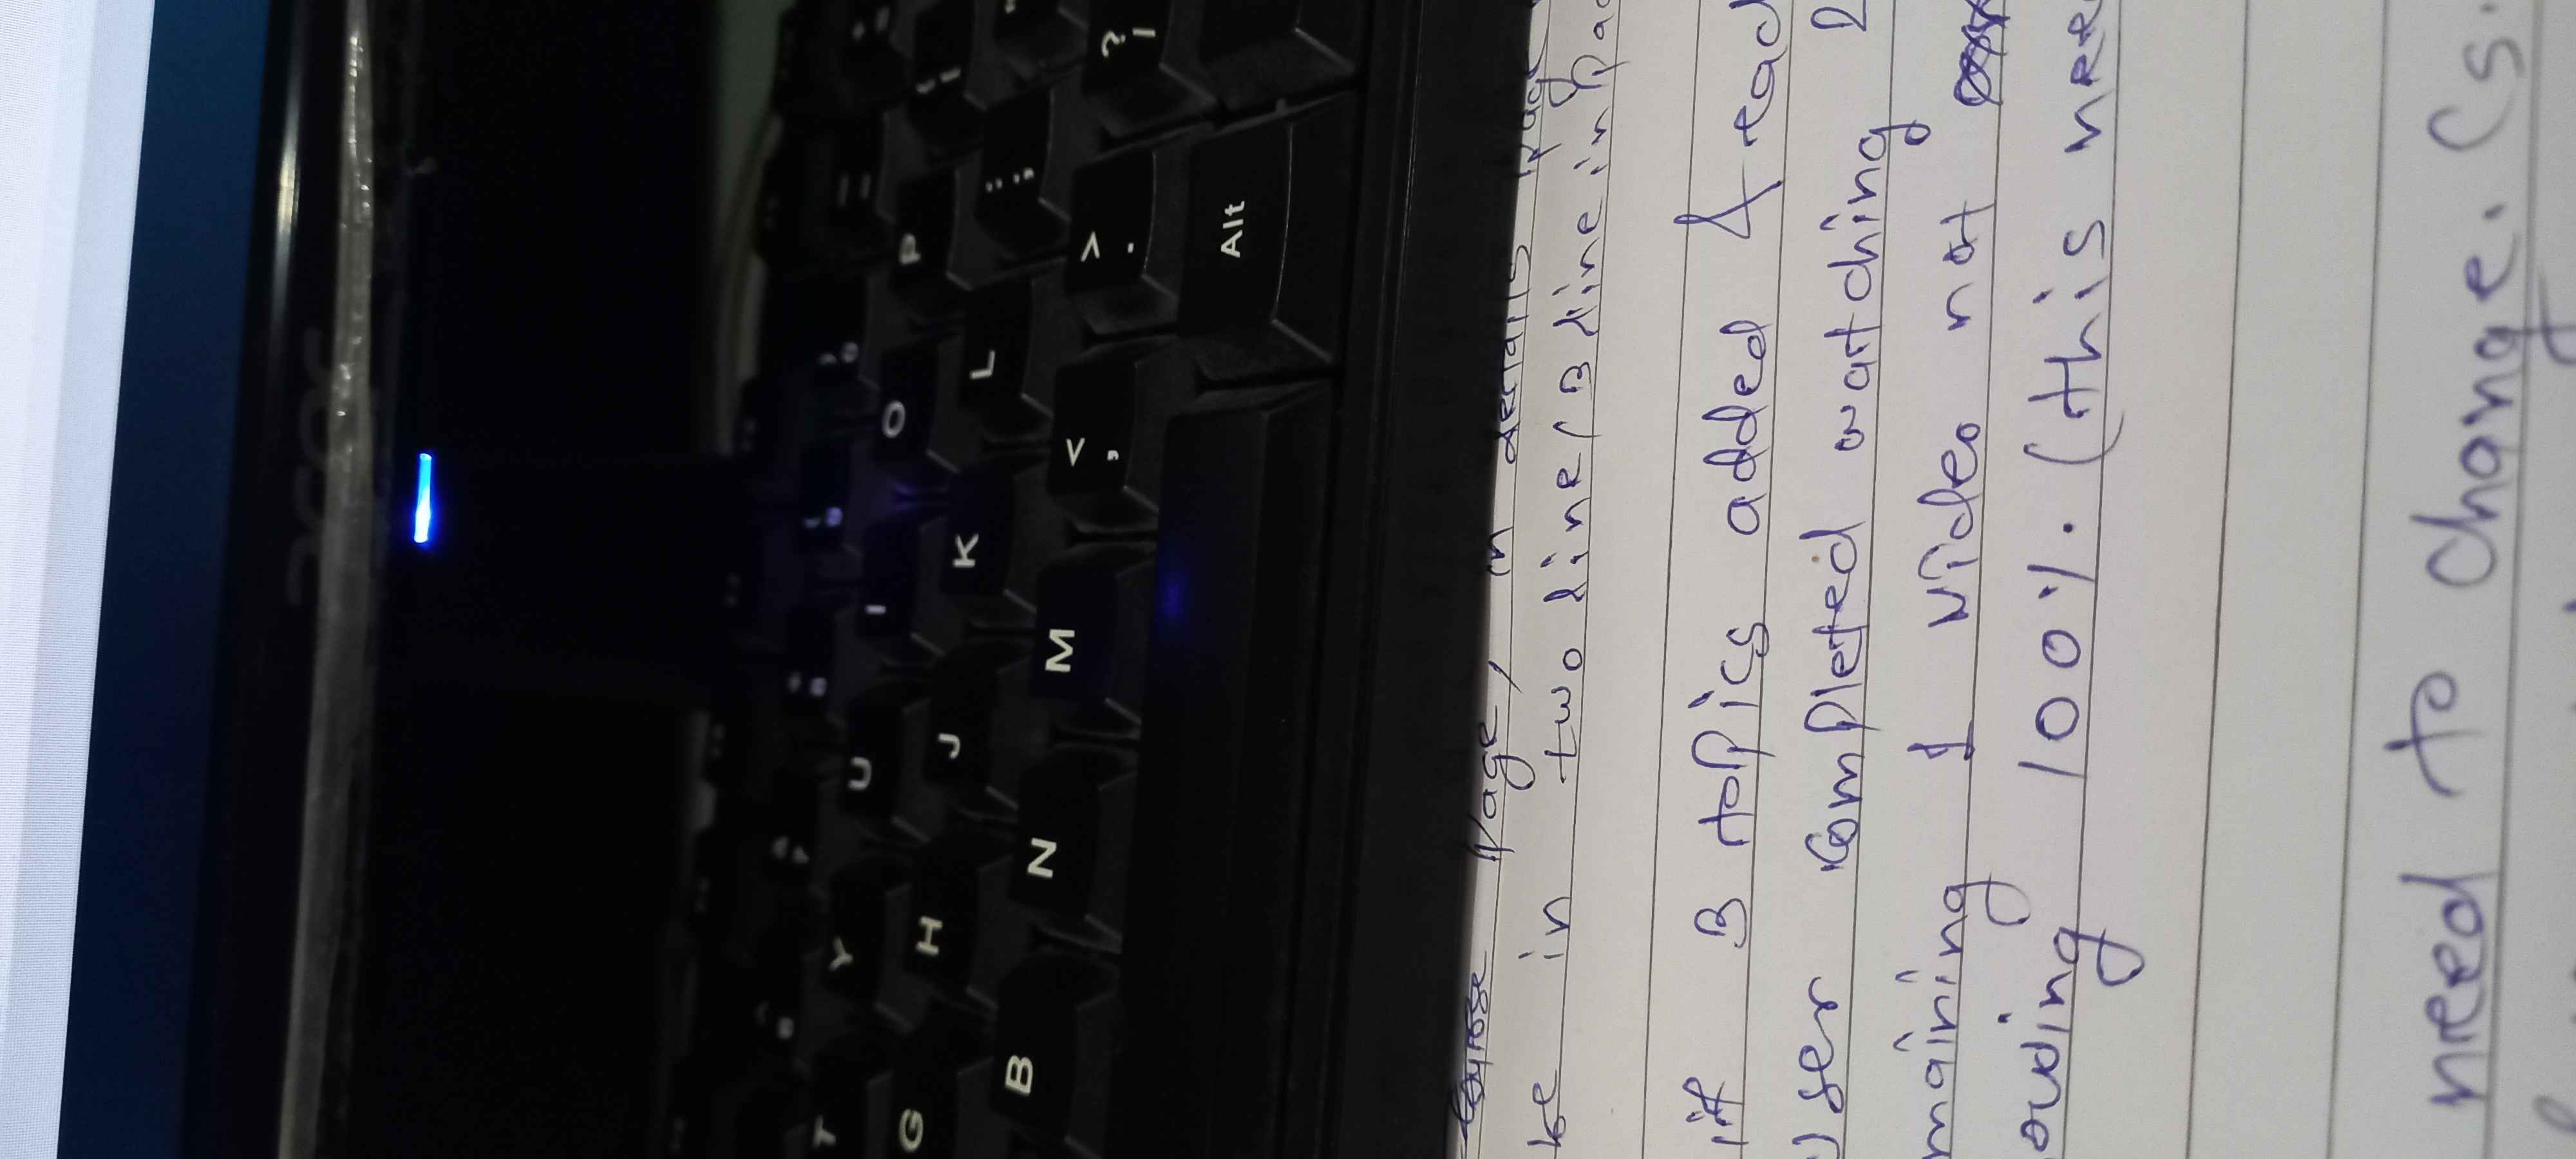 acer
T Y U I O P
G H J K L : ;
B N M < , > . ?
Alt
Page, in details page
be in two line / 3 line in Pag
if 3 topics added & eac
user completed watching 2
maining 1 video not
owing 100%. (this nee
need to change. (s.